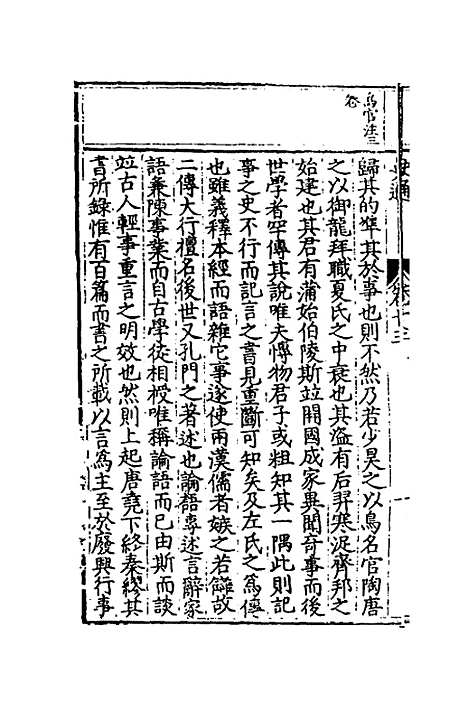 歸其的準其於事也則不然乃若少昊之以鳥名官陶唐
之以御龍拜職夏氏之中衰也其盜有后羿寒浞齊邦之
始建也其君有蒲始伯陵斯竝開國成家異聞奇事而後
世學者罕傳其說唯夫愽物君子或粗知其一隅此則記
事之史不行而記言之書見重斷可知矣及左氏之爲傳
也雖義釋本經而語雜它事遂使兩漢儒者嫉之若讎故
二傳大行擅名後世又孔門之著述也論語專述言辭家
語兼陳事業而自古學徒相授唯稱論語而已由斯而談
竝古人輕事重言之明效也然則上起唐堯下終秦繆其
書所錄惟有百篇而書之所載以言爲主至於廢興行事